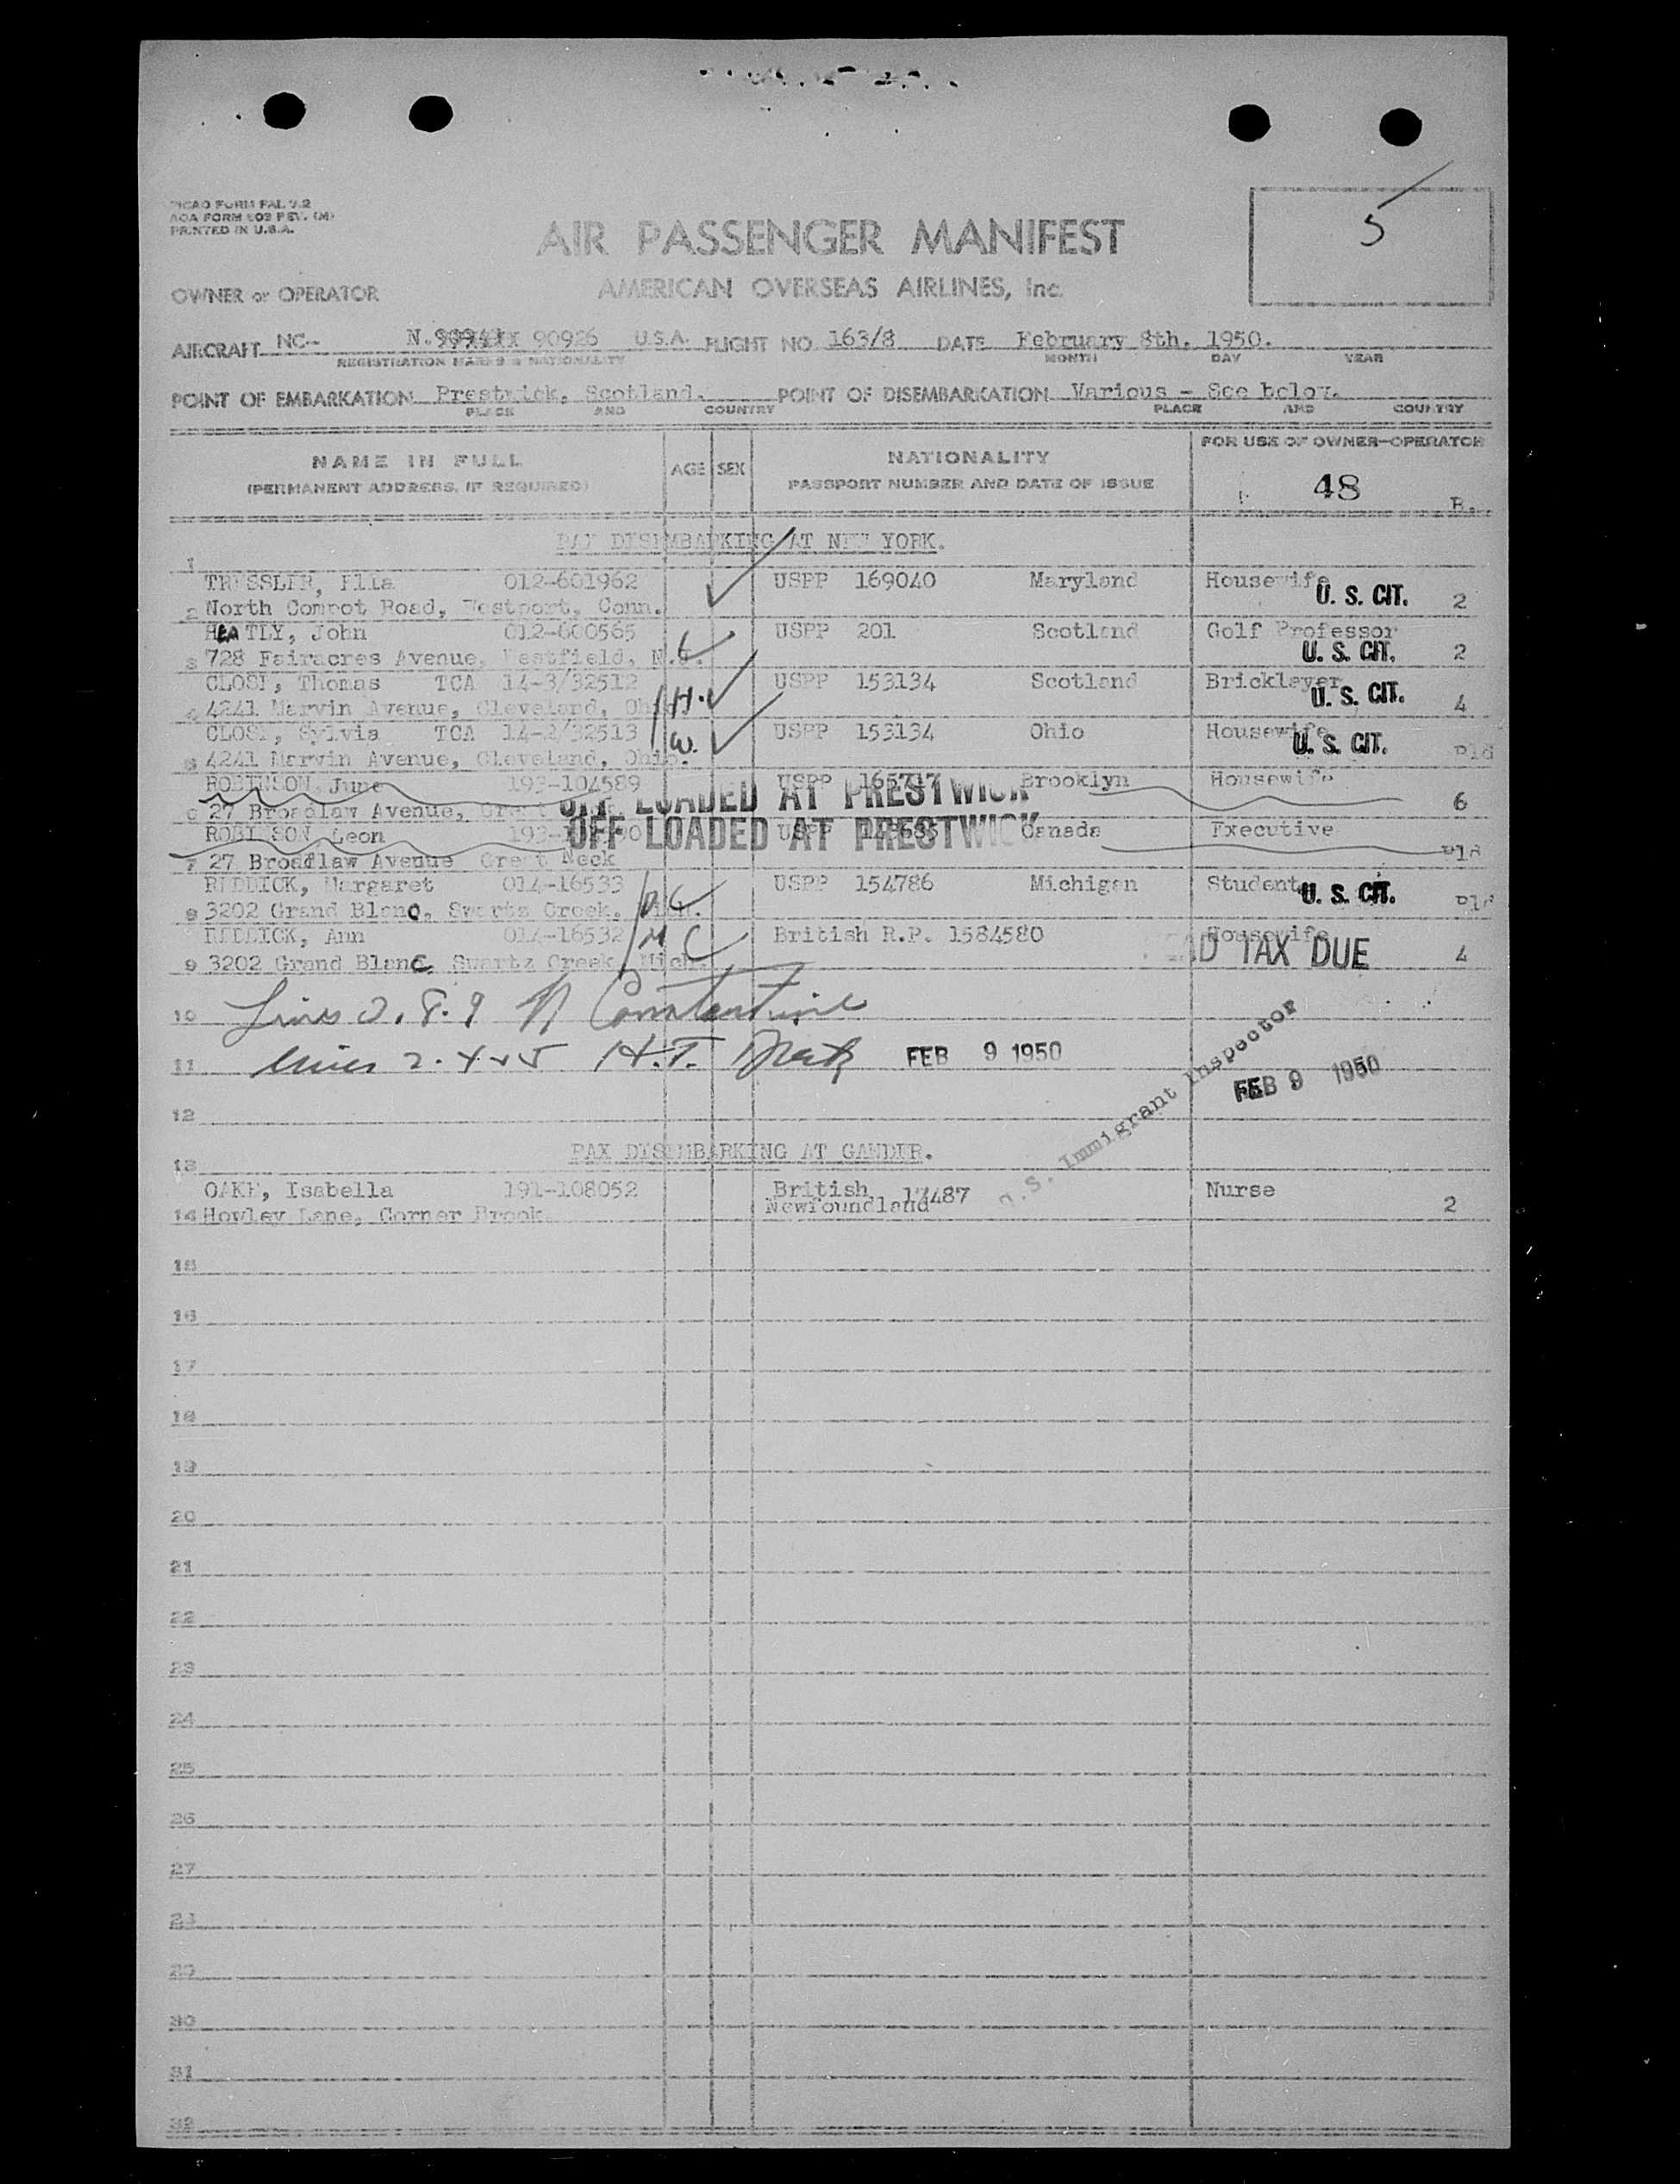 ICAO FORM FAL 7.2
AOA FORM 609 REV. (M)
PRINTED IN U.S.A.
5
AIR PASSENGER MANIFEST
OWNER or OPERATOR AMERICAN OVERSEAS AIRLINES, Inc.
AIRCRAFT NC- N. 90926 U.S.A. FLIGHT NO 163/8 DATE February 8th, 1950.
REGISTRATION MARKS & NATIONALITY MONTH DAY YEAR
POINT OF EMBARKATION Prestwick, Scotland. POINT OF DISEMBARKATION Various - See below.
PLACE AND COUNTRY PLACE AND COUNTRY
NAME IN FULL AGE SEX NATIONALITY FOR USE OF OWNER-OPERATOR
(PERMANENT ADDRESS, IF REQUIRED) PASSPORT NUMBER AND DATE OF ISSUE 48 B.
PAX DISEMBARKING AT NEW YORK.
1
TRESSLER, Ella 012-601962 USPP 169040 Maryland Housewife U. S. CIT.
2 North Compot Road, Westport, Conn. 2
HEATLY, John 012-600565 USPP 201 Scotland Golf Professor
3 728 Fairacres Avenue, Westfield, N.J. U. S. CIT. 2
CLOSE, Thomas TCA 14-3/32512 USPP 153134 Scotland Bricklayer
4 4241 Marvin Avenue, Cleveland, Ohio. H. U. S. CIT. 4
CLOSE, Sylvia TCA 14-2/32513 W. USPP 153134 Ohio Housewife U. S. CIT.
5 4241 Marvin Avenue, Cleveland, Ohio. Bld
ROBINSON, June 193-104589 USPP 165717 Brooklyn Housewife
OFF LOADED AT PRESTWICK
6 27 Broadlaw Avenue, Great 6
ROBINSON, Leon USPP Canada Executive
OFF LOADED AT PRESTWICK
7 27 Broadlaw Avenue Great Neck
REDDICK, Margaret 014-16533 USPP 154786 Michigan Student U. S. CIT.
8 3202 Grand Blanc, Swartz Creek, Mich.
REDDICK, Ann 014-16532 British R.P. 1584580 Housewife
9 3202 Grand Blanc, Swartz Creek Mich. TAX DUE 4
10 Lines 2. 8. 9 Constantine
11 Lines 2. 4 + 5 H.T. FEB 9 1950
U.S. Immigrant Inspector
FEB 9 1950
12
PAX DISEMBARKING AT GANDER.
13
OAKE, Isabella 191-108052 British 17487 Nurse
14 Howley Lane, Corner Brook. Newfoundland 2
15
16
17
18
19
20
21
22
23
24
25
26
27
28
29
30
31
32